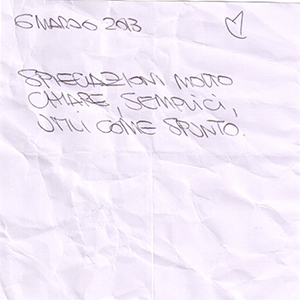 6 MARZO 2013
SPIEGAZIONI MOLTO
CHIARE, SEMPLICI,
UTILI COME SPUNTO.